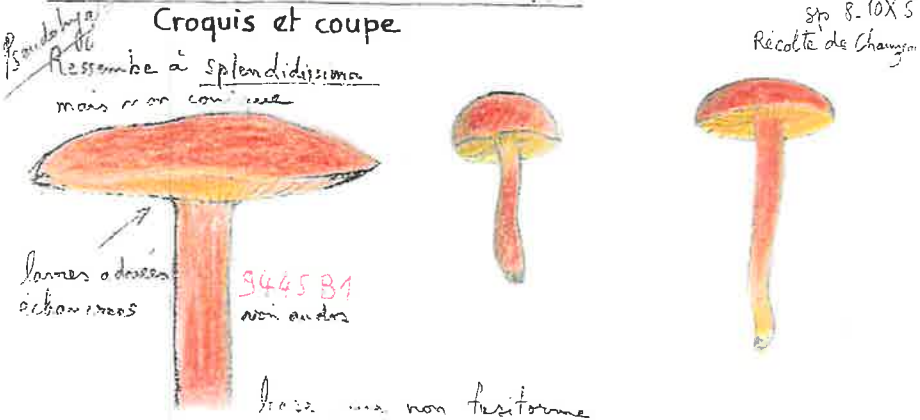 Croquis et coupe
sp 8-10X5
Récolte de
Ressemble à splendidissima
mais non
lames adnées
échancrées
9445 B1
voir au dos
non fusiforme